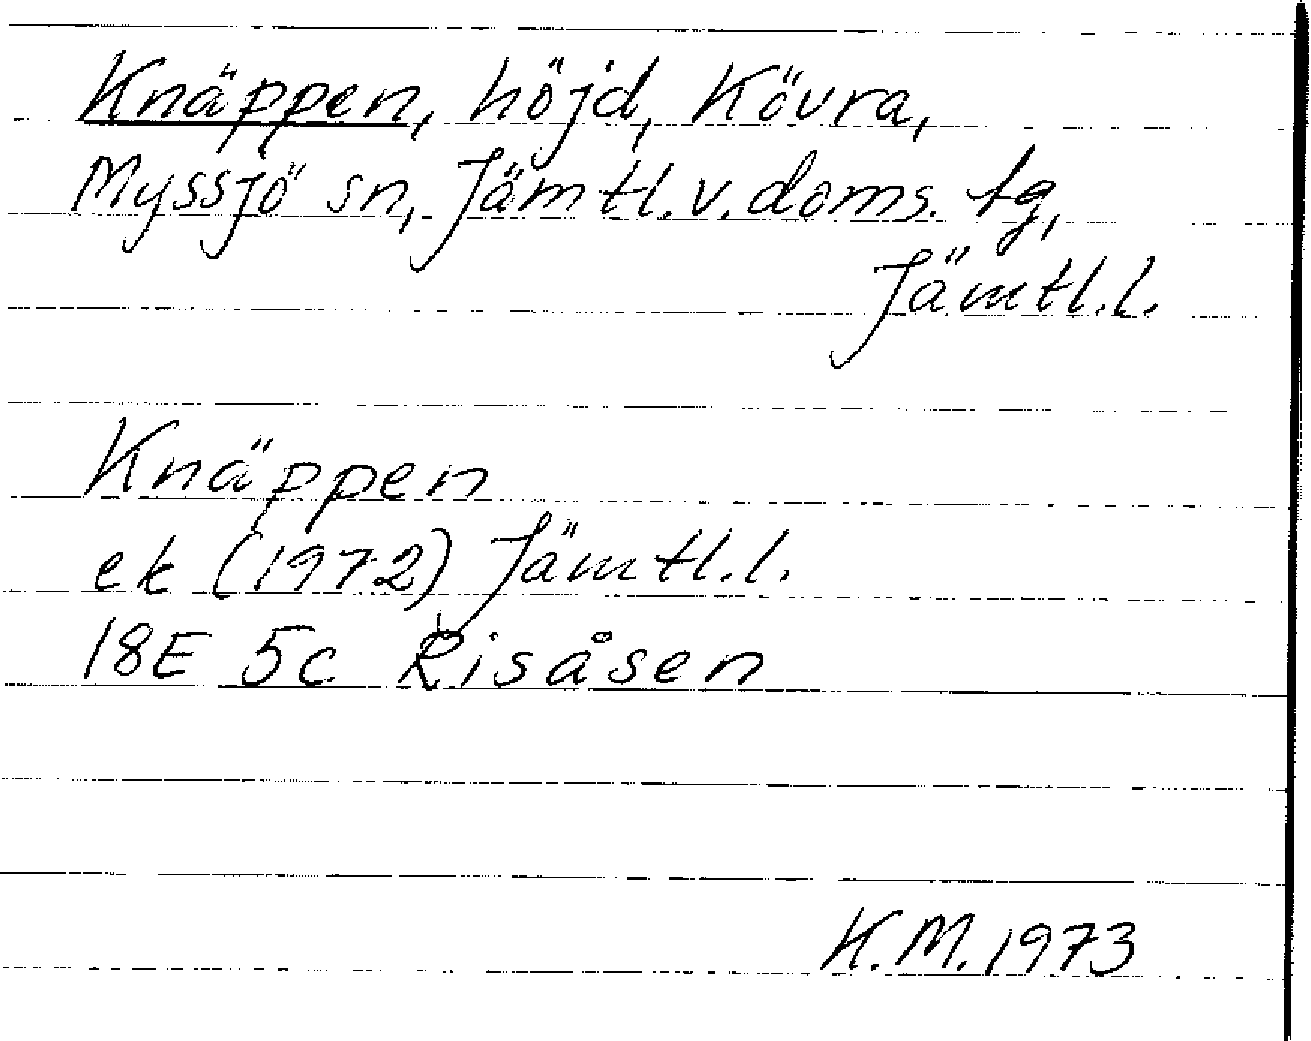 Knäppen, höjd, Kövra,
Myssjö sn, Jämtl.v.doms.tg,
Jämtl.l.
Knäppen
ek (1972) Jämtl.l.
18E 5c Risåsen
K.M.1973